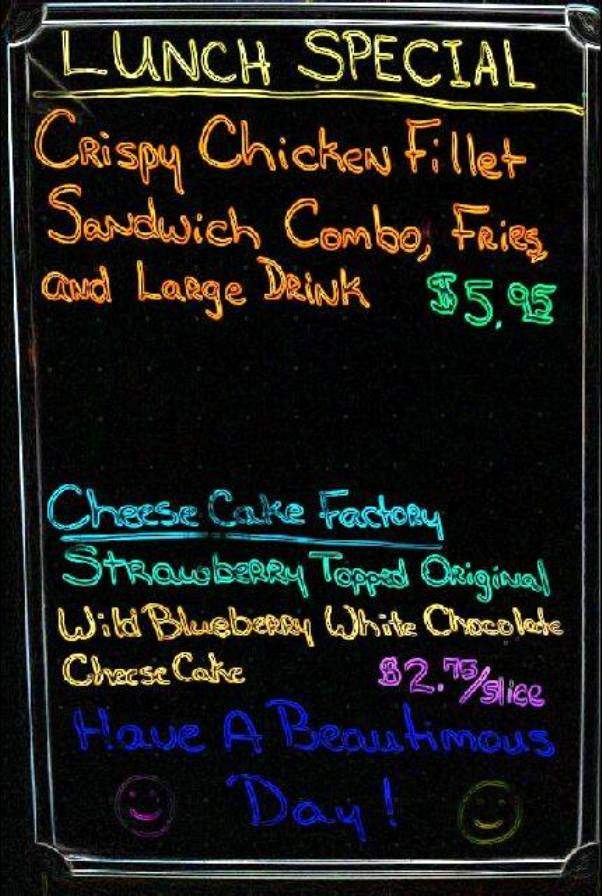 LUNCH SPECIAL
Crispy Chicken Fillet
Sandwich Combo, Fries,
and Large Drink $5.95
Cheese Cake Factory
Strawberry Topped Original
Wild Blueberry White Chocolate
Cheese Cake $2.75/slice
Have A Beautimous
Day!